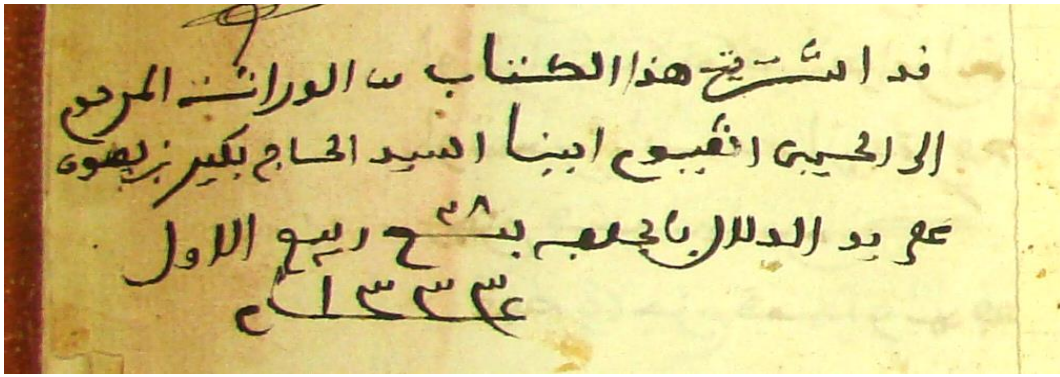 قد اشتريت هذا الكتاب من الوراثة المرحوم
الى الحي القيوم ابينا السيد الحاج بكير بن
على يد الدلال بالجلفه بتاريخ ٣٨ ربيع الاول
١٣٣٣